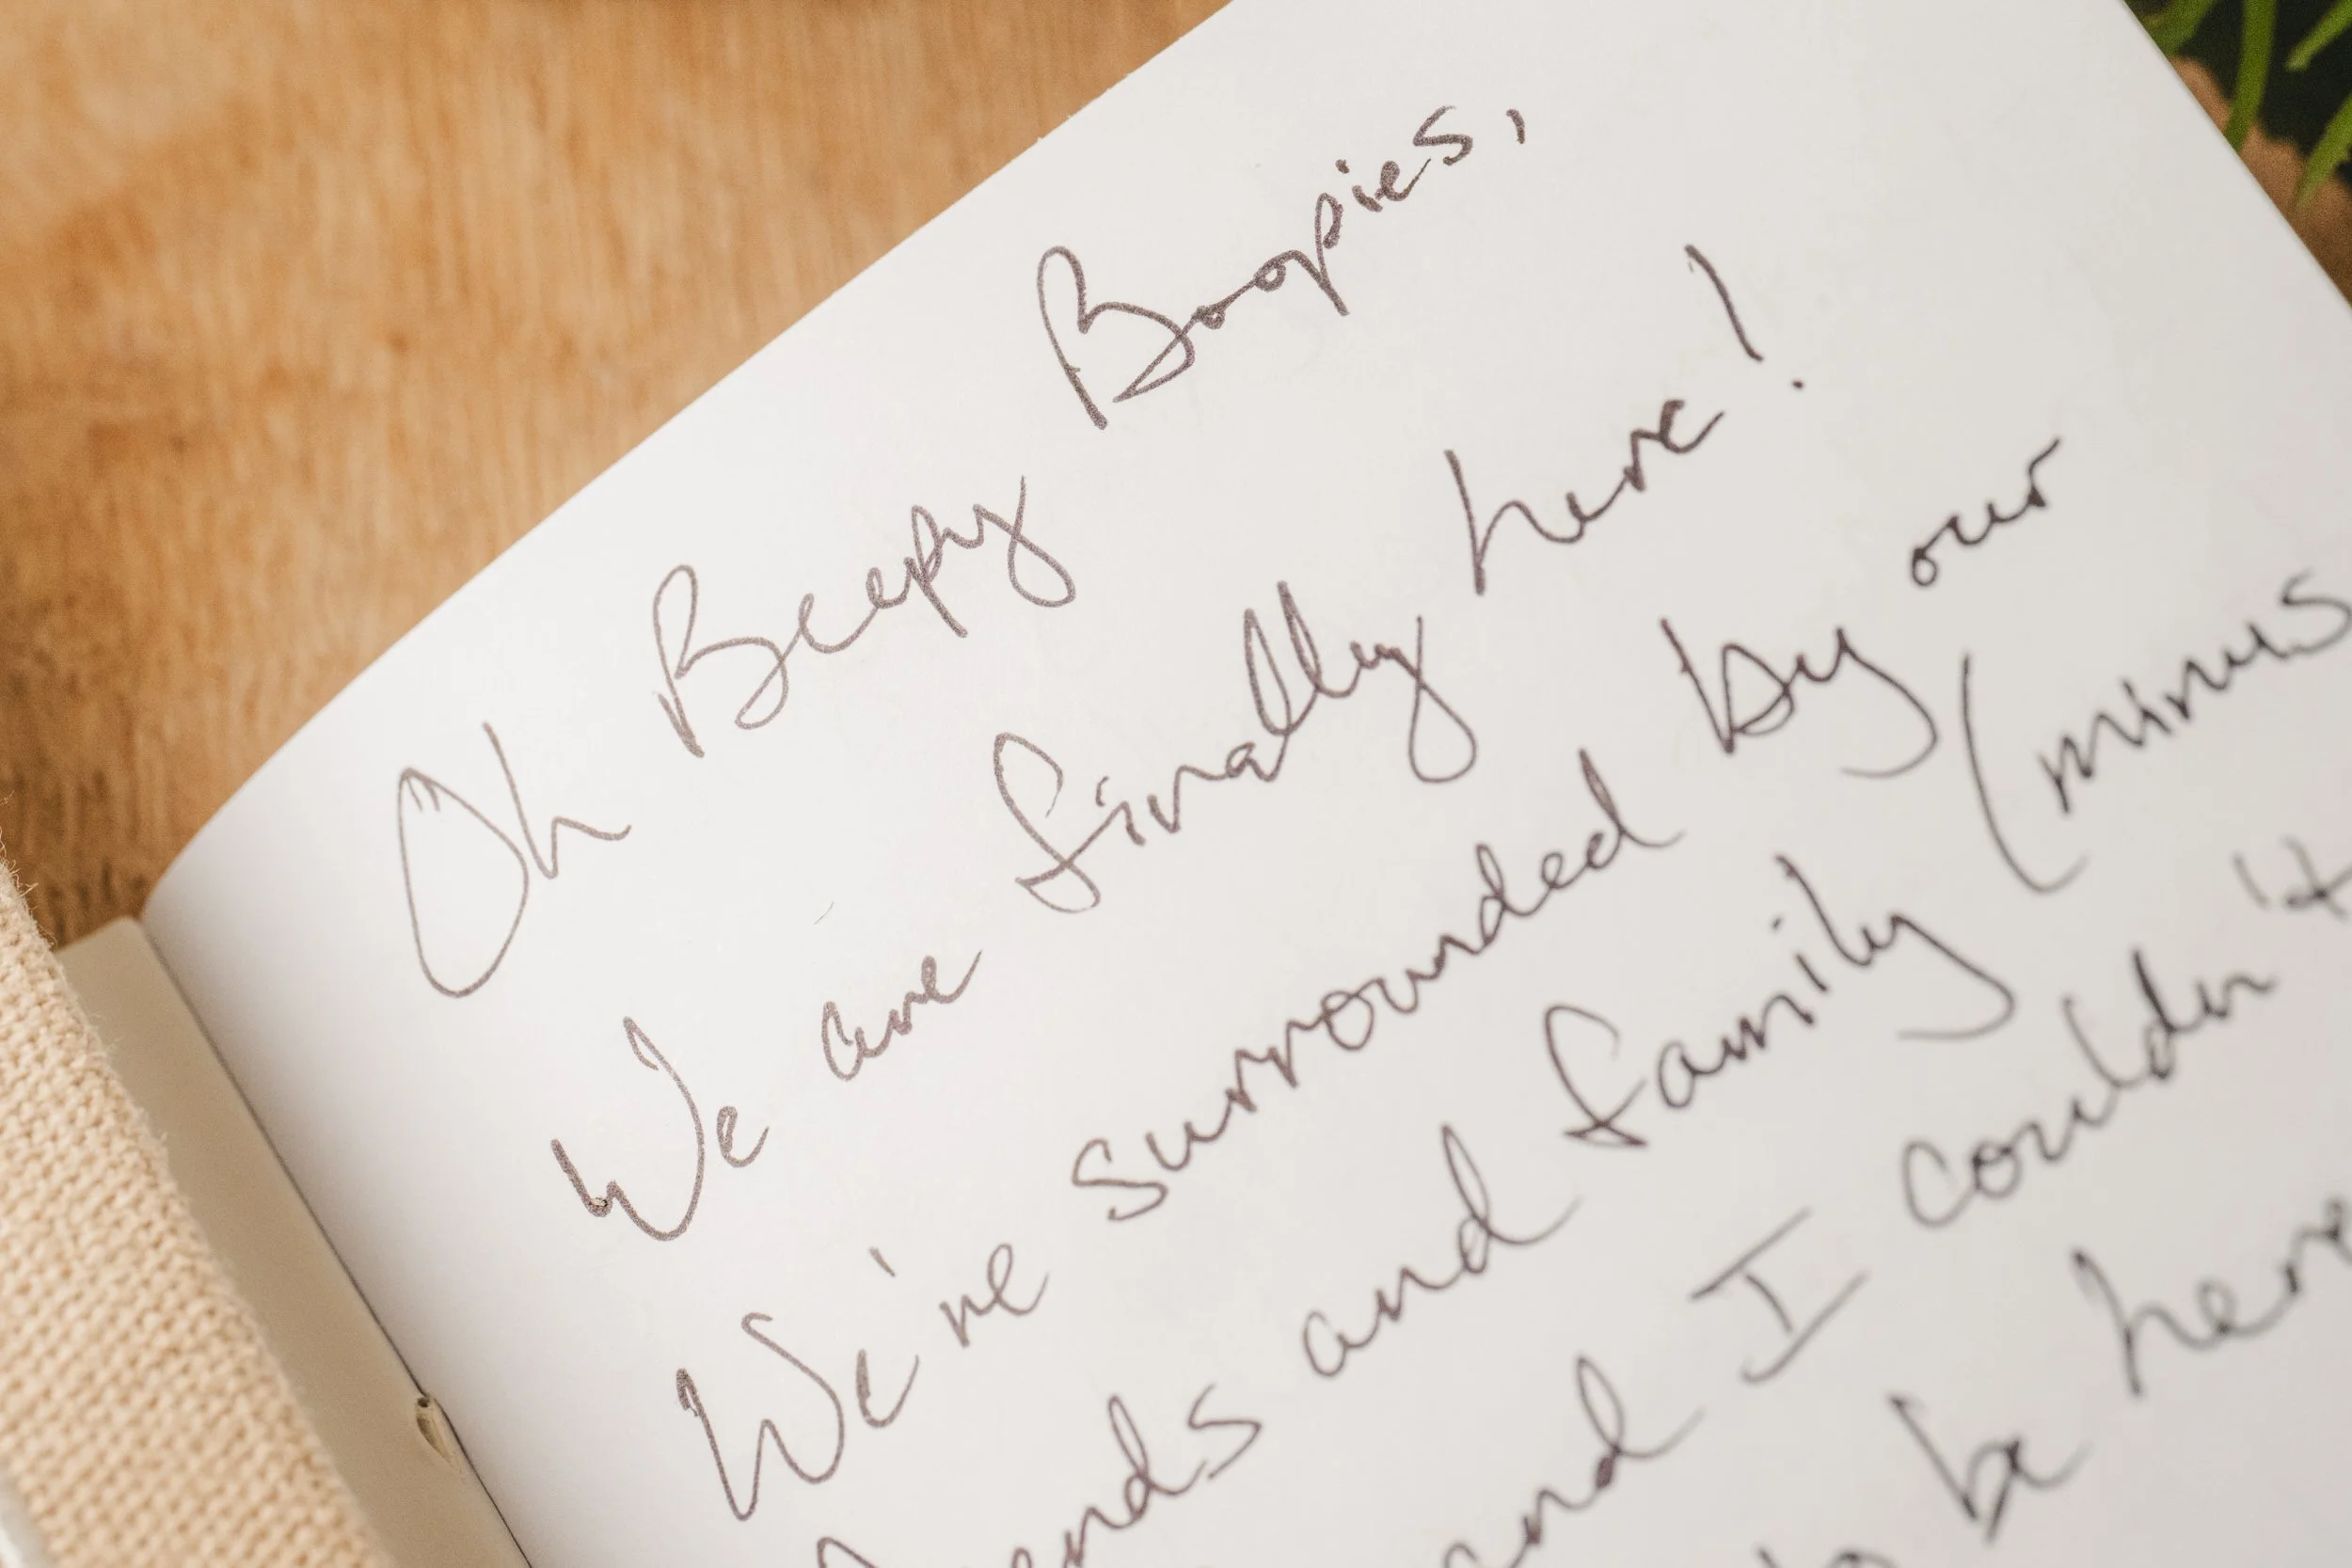 Oh Beepy Boopies,
We are finally here!
We're surrounded by our
friends and family (minus
and I couldn't
be here